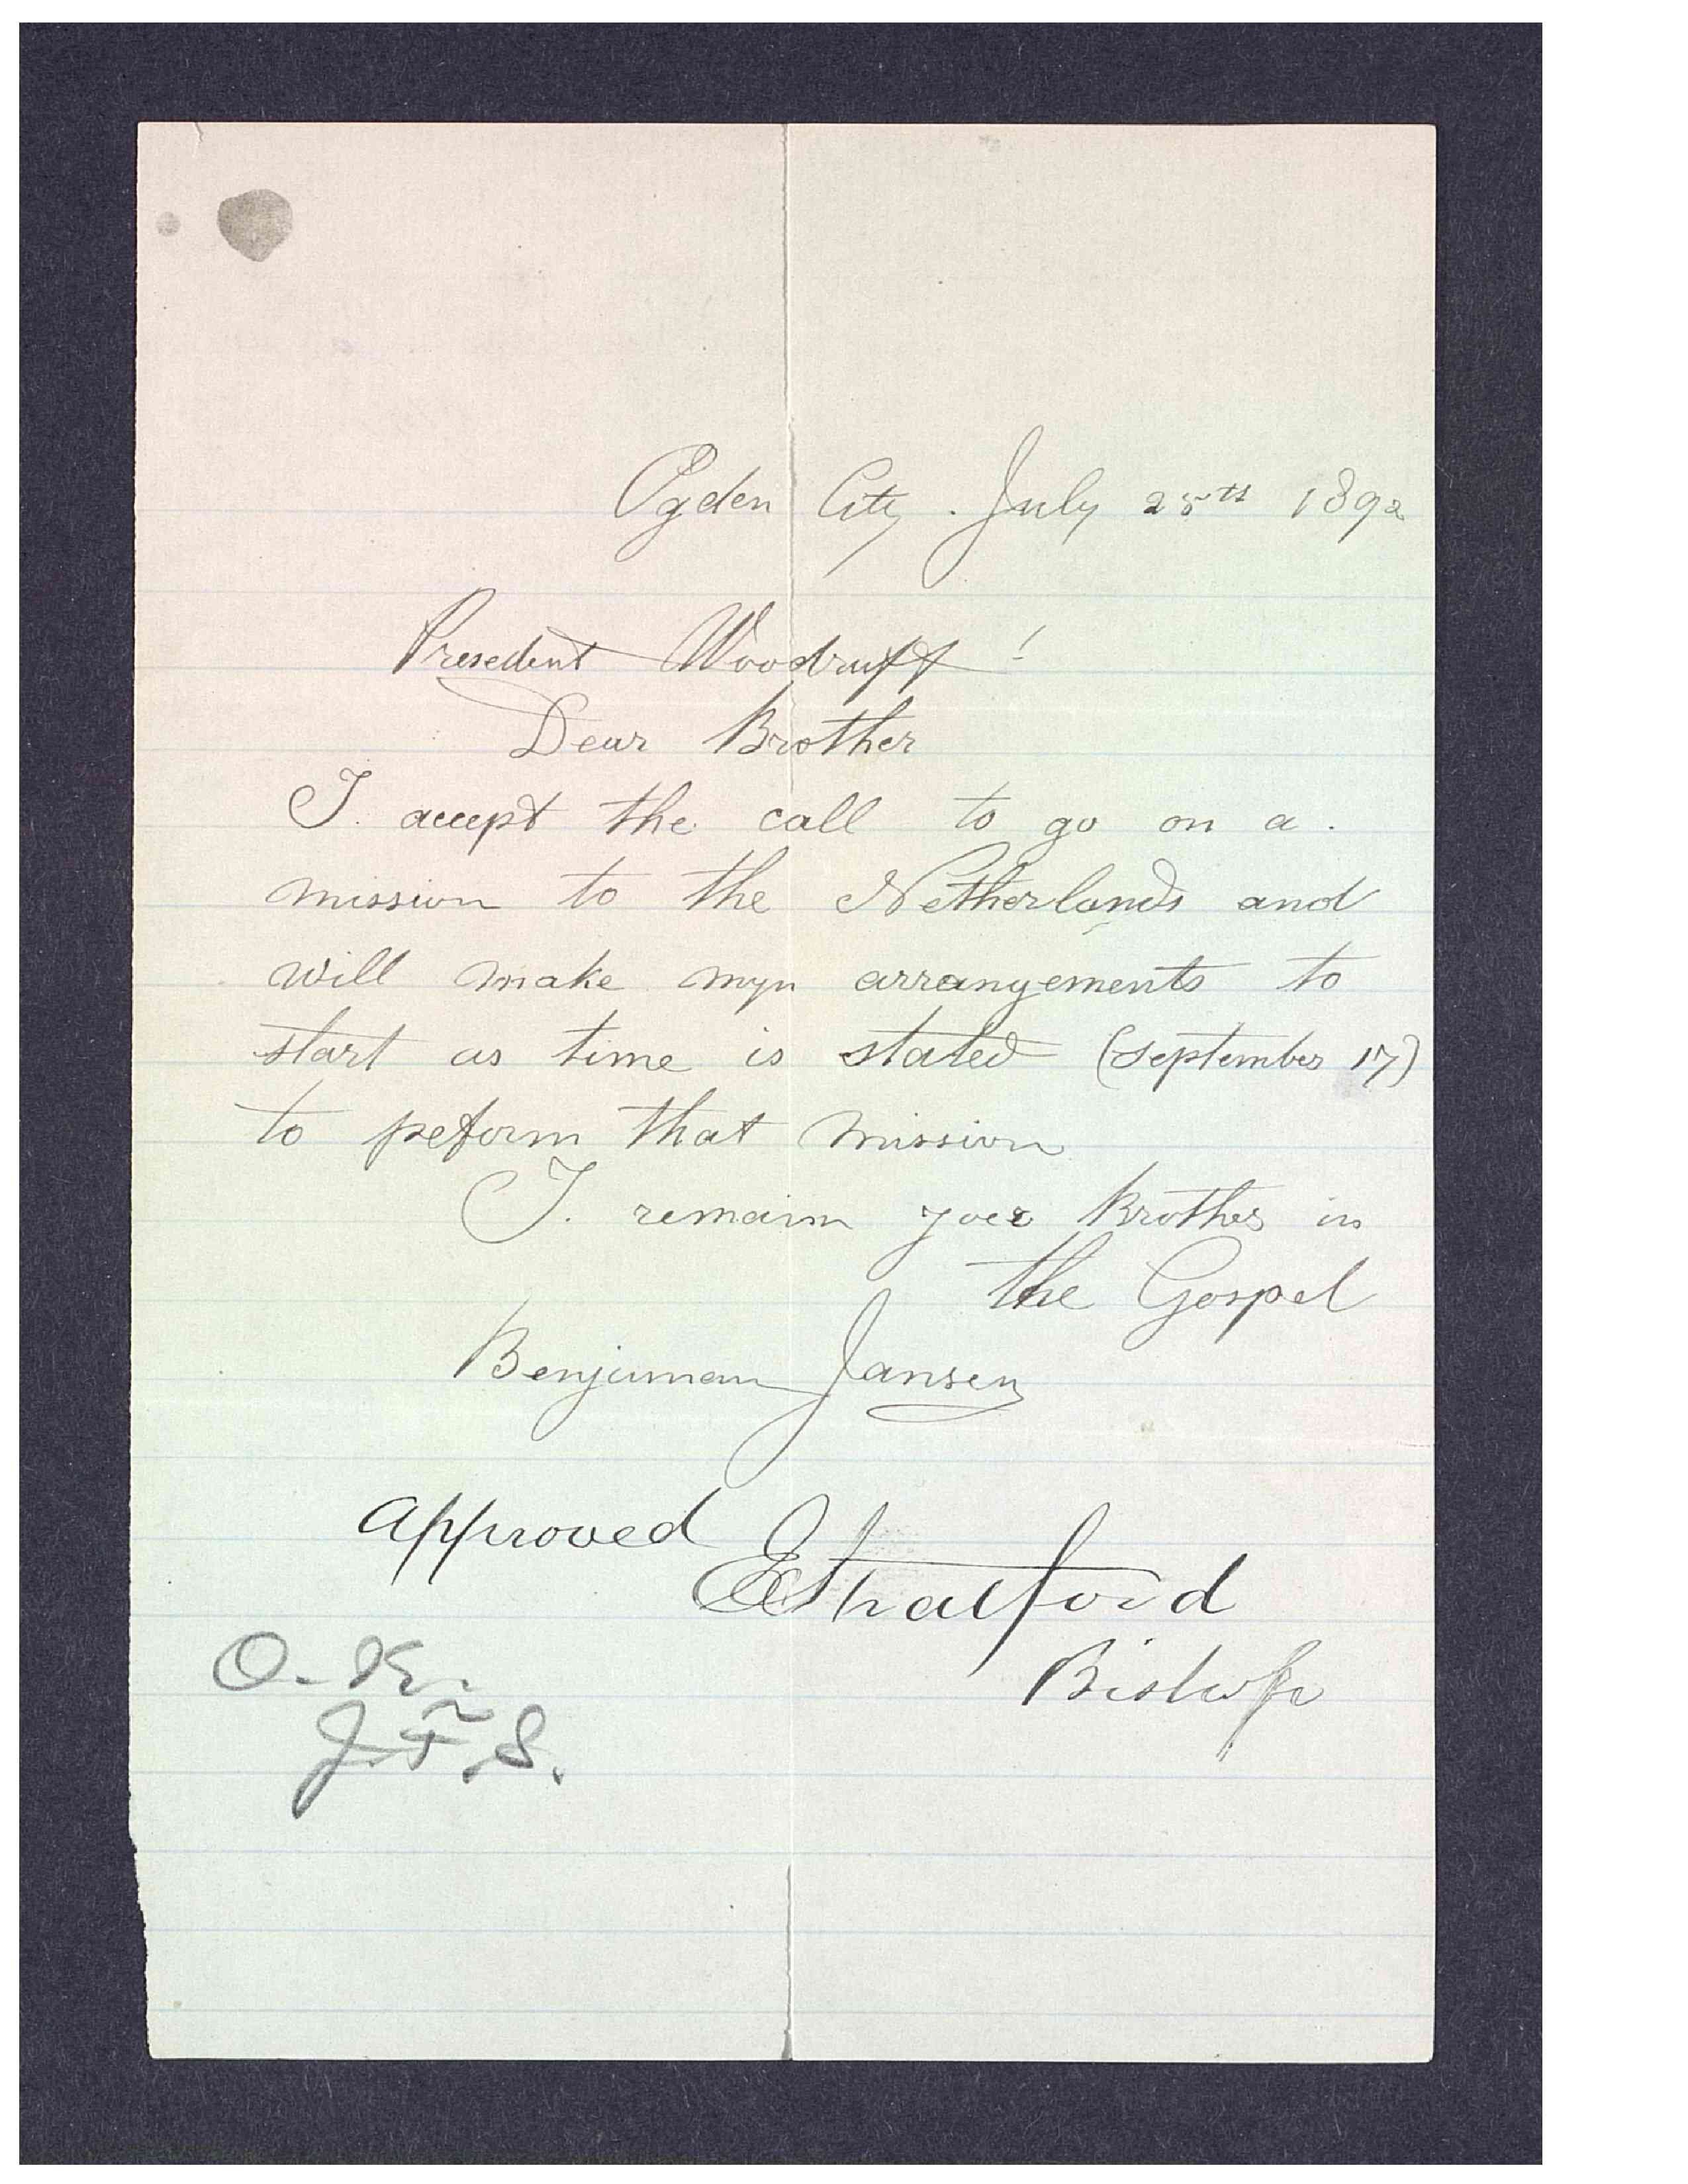 Ogden City. July 25th 1892
Presedent Woodruff!
Dear Brother
I. accept the call to go on a.
mission to the Netherlands and
will make myn arrangements to
start as time is stated (september 17)
to peform that mission
I. remain yoer Brother in
the Gospel
Benjuman Jansen
Approved
EStratford
Bishop
O.K.
J.F.S.